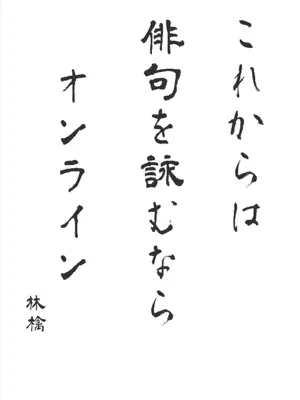 これからは
俳句を詠むなら
オンライン
林檎